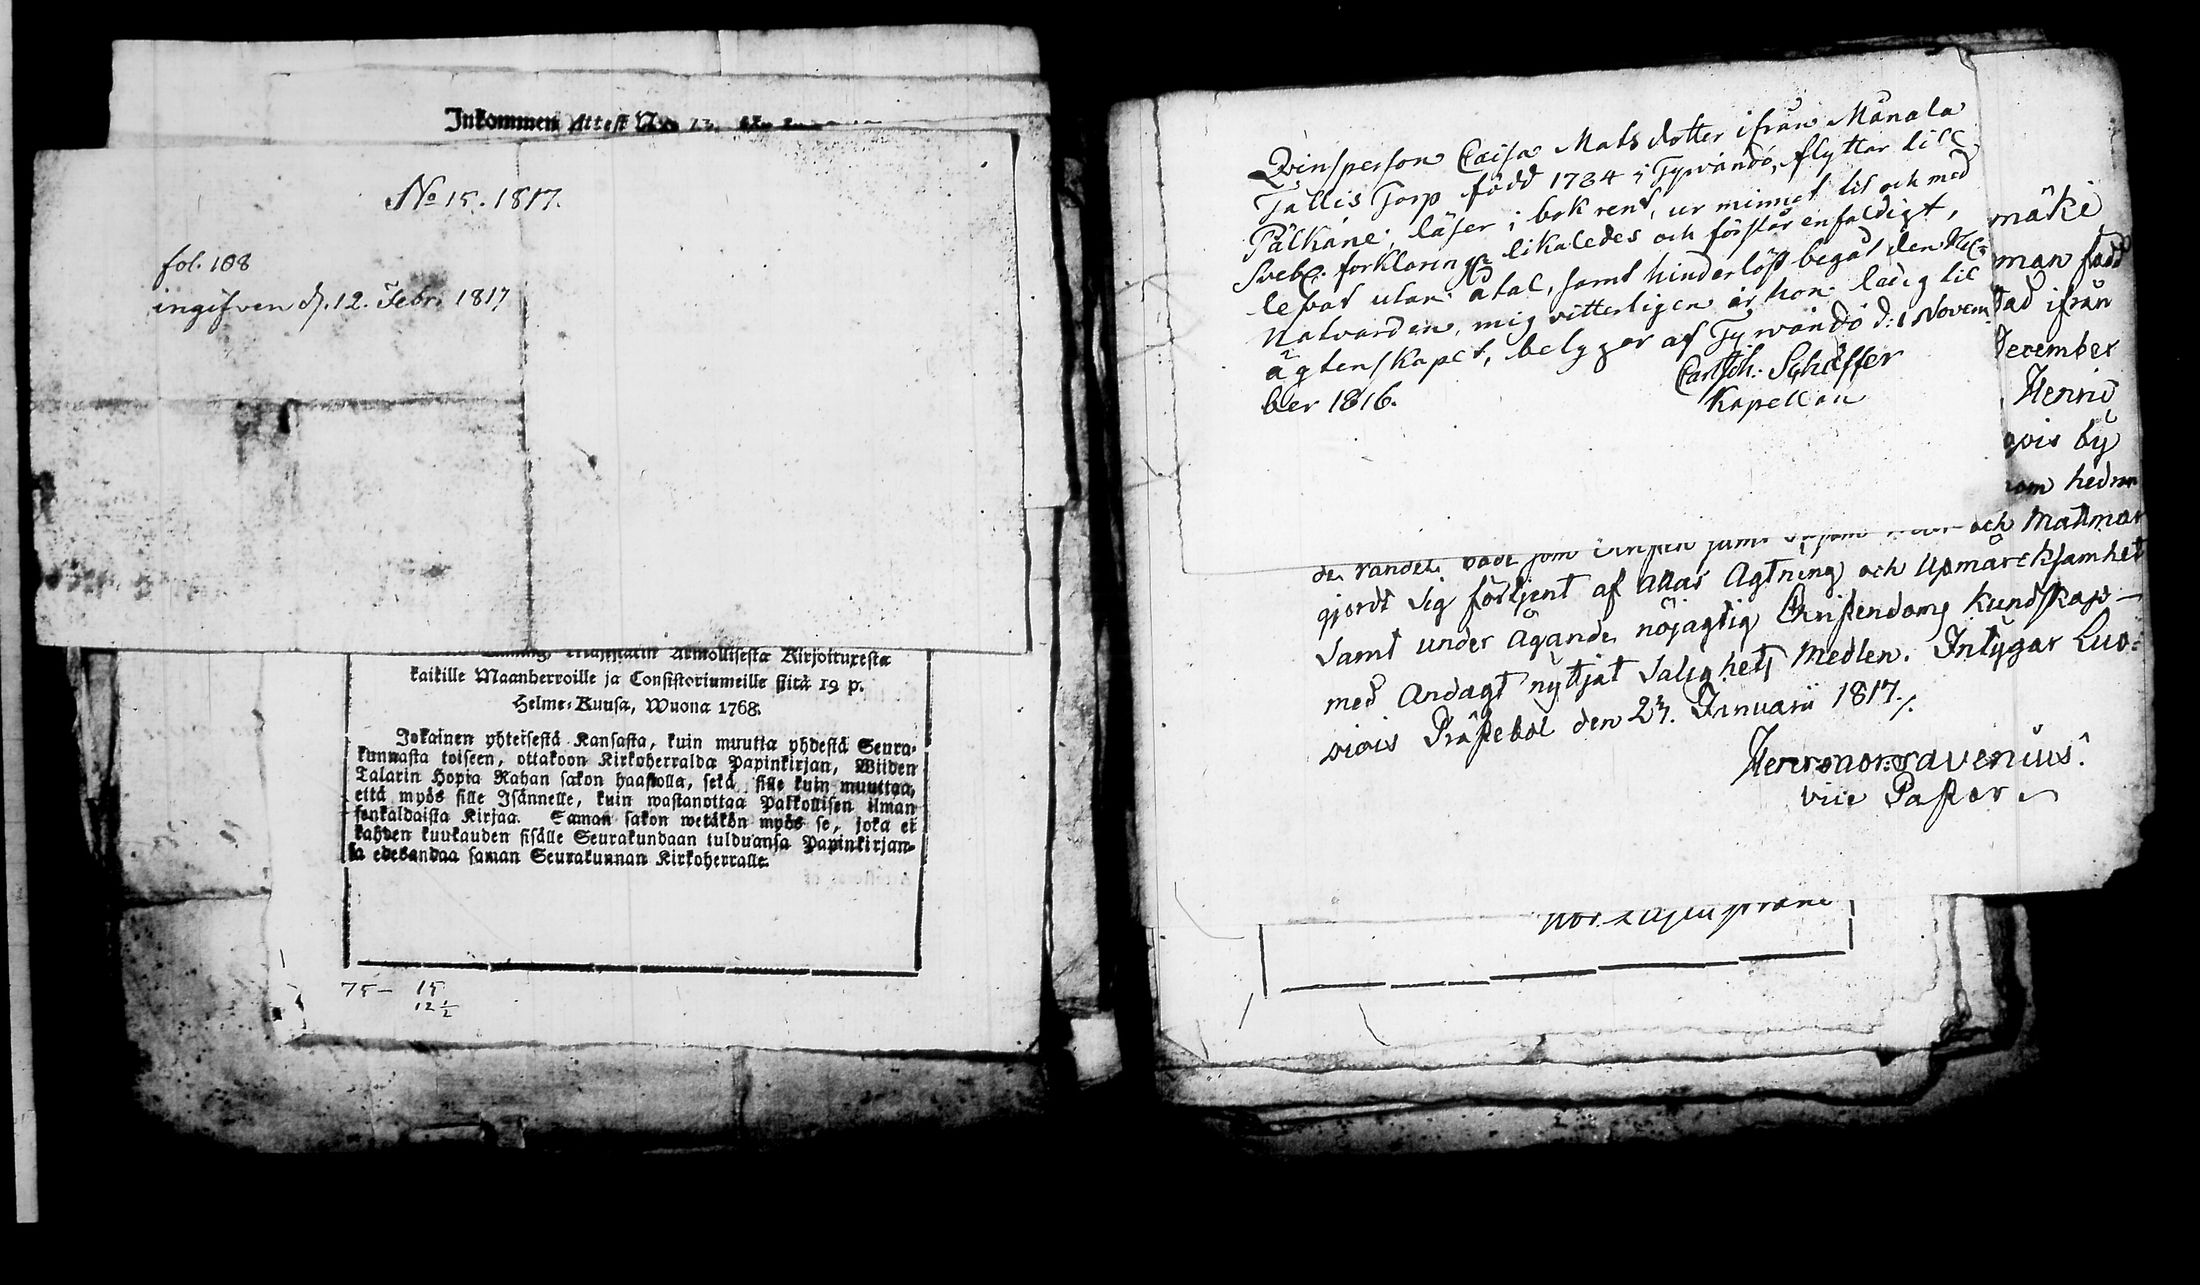 Inkommen Attest No 13.
No 15. 1817.
fol. 108
ingifven d. 12. Febr. 1817
Armollisesta Kirjoituxesta
kaikille Maanherroille ja Consistoriumeille siitä 19 p.
Helme-Kuusa, Wuona 1768.
Jokainen yhteisestä Kansasta, kuin muutta yhdestä Seura-
kunnasta toiseen, ottakoon Kirkoherralda Papinkirjan, Wiiden
Talarin Hopia Rahan sakon haastolla, sekä sille kuin muuttaa,
että myös sille Isännelle, kuin wastanottaa Palkollisen ilman
senkaldaista Kirjaa. Saman sakon wetäkön myös se, joka ei
kahden kuukauden sisälle Seurakundaan tulduansa Papinkirjan-
sa edesandaa saman Seurakunnan Kirkoherralle.
75 — 15
12 1/2
Qvinsperson Caisa Mats dotter ifrån Mänala
Tallis Torp född 1784 i Tyrvändö, flyttar till
Pälkäne; läser i bok rent, ur minnet til och med
Sveb. forklaring likaledes och förstår enfaldigt,
lefvat utan åtal, samt hinderlöst begåt den Hel-
Natvarden, mig vitterligen är hon ledig til
ägtenskapet, betygar af Tyrvändö d: 1 Novem-
ber 1816.
Carl Joh. Schäffer
Kapellan
mäki
man född
tad ifrån
December
Henric
qvis by
som hedran
de vandel både som Christen samt och Matmor
gjordt sig förtjent af allas Agtning och Upmärcksamhet
samt under ägande nöjagtig Christendoms Kundskap —
med Andagt nyttjat Salighets Medlen. Intygar Luo-
viois Prästebol den 27. Januarii 1817./.
vice Pastor